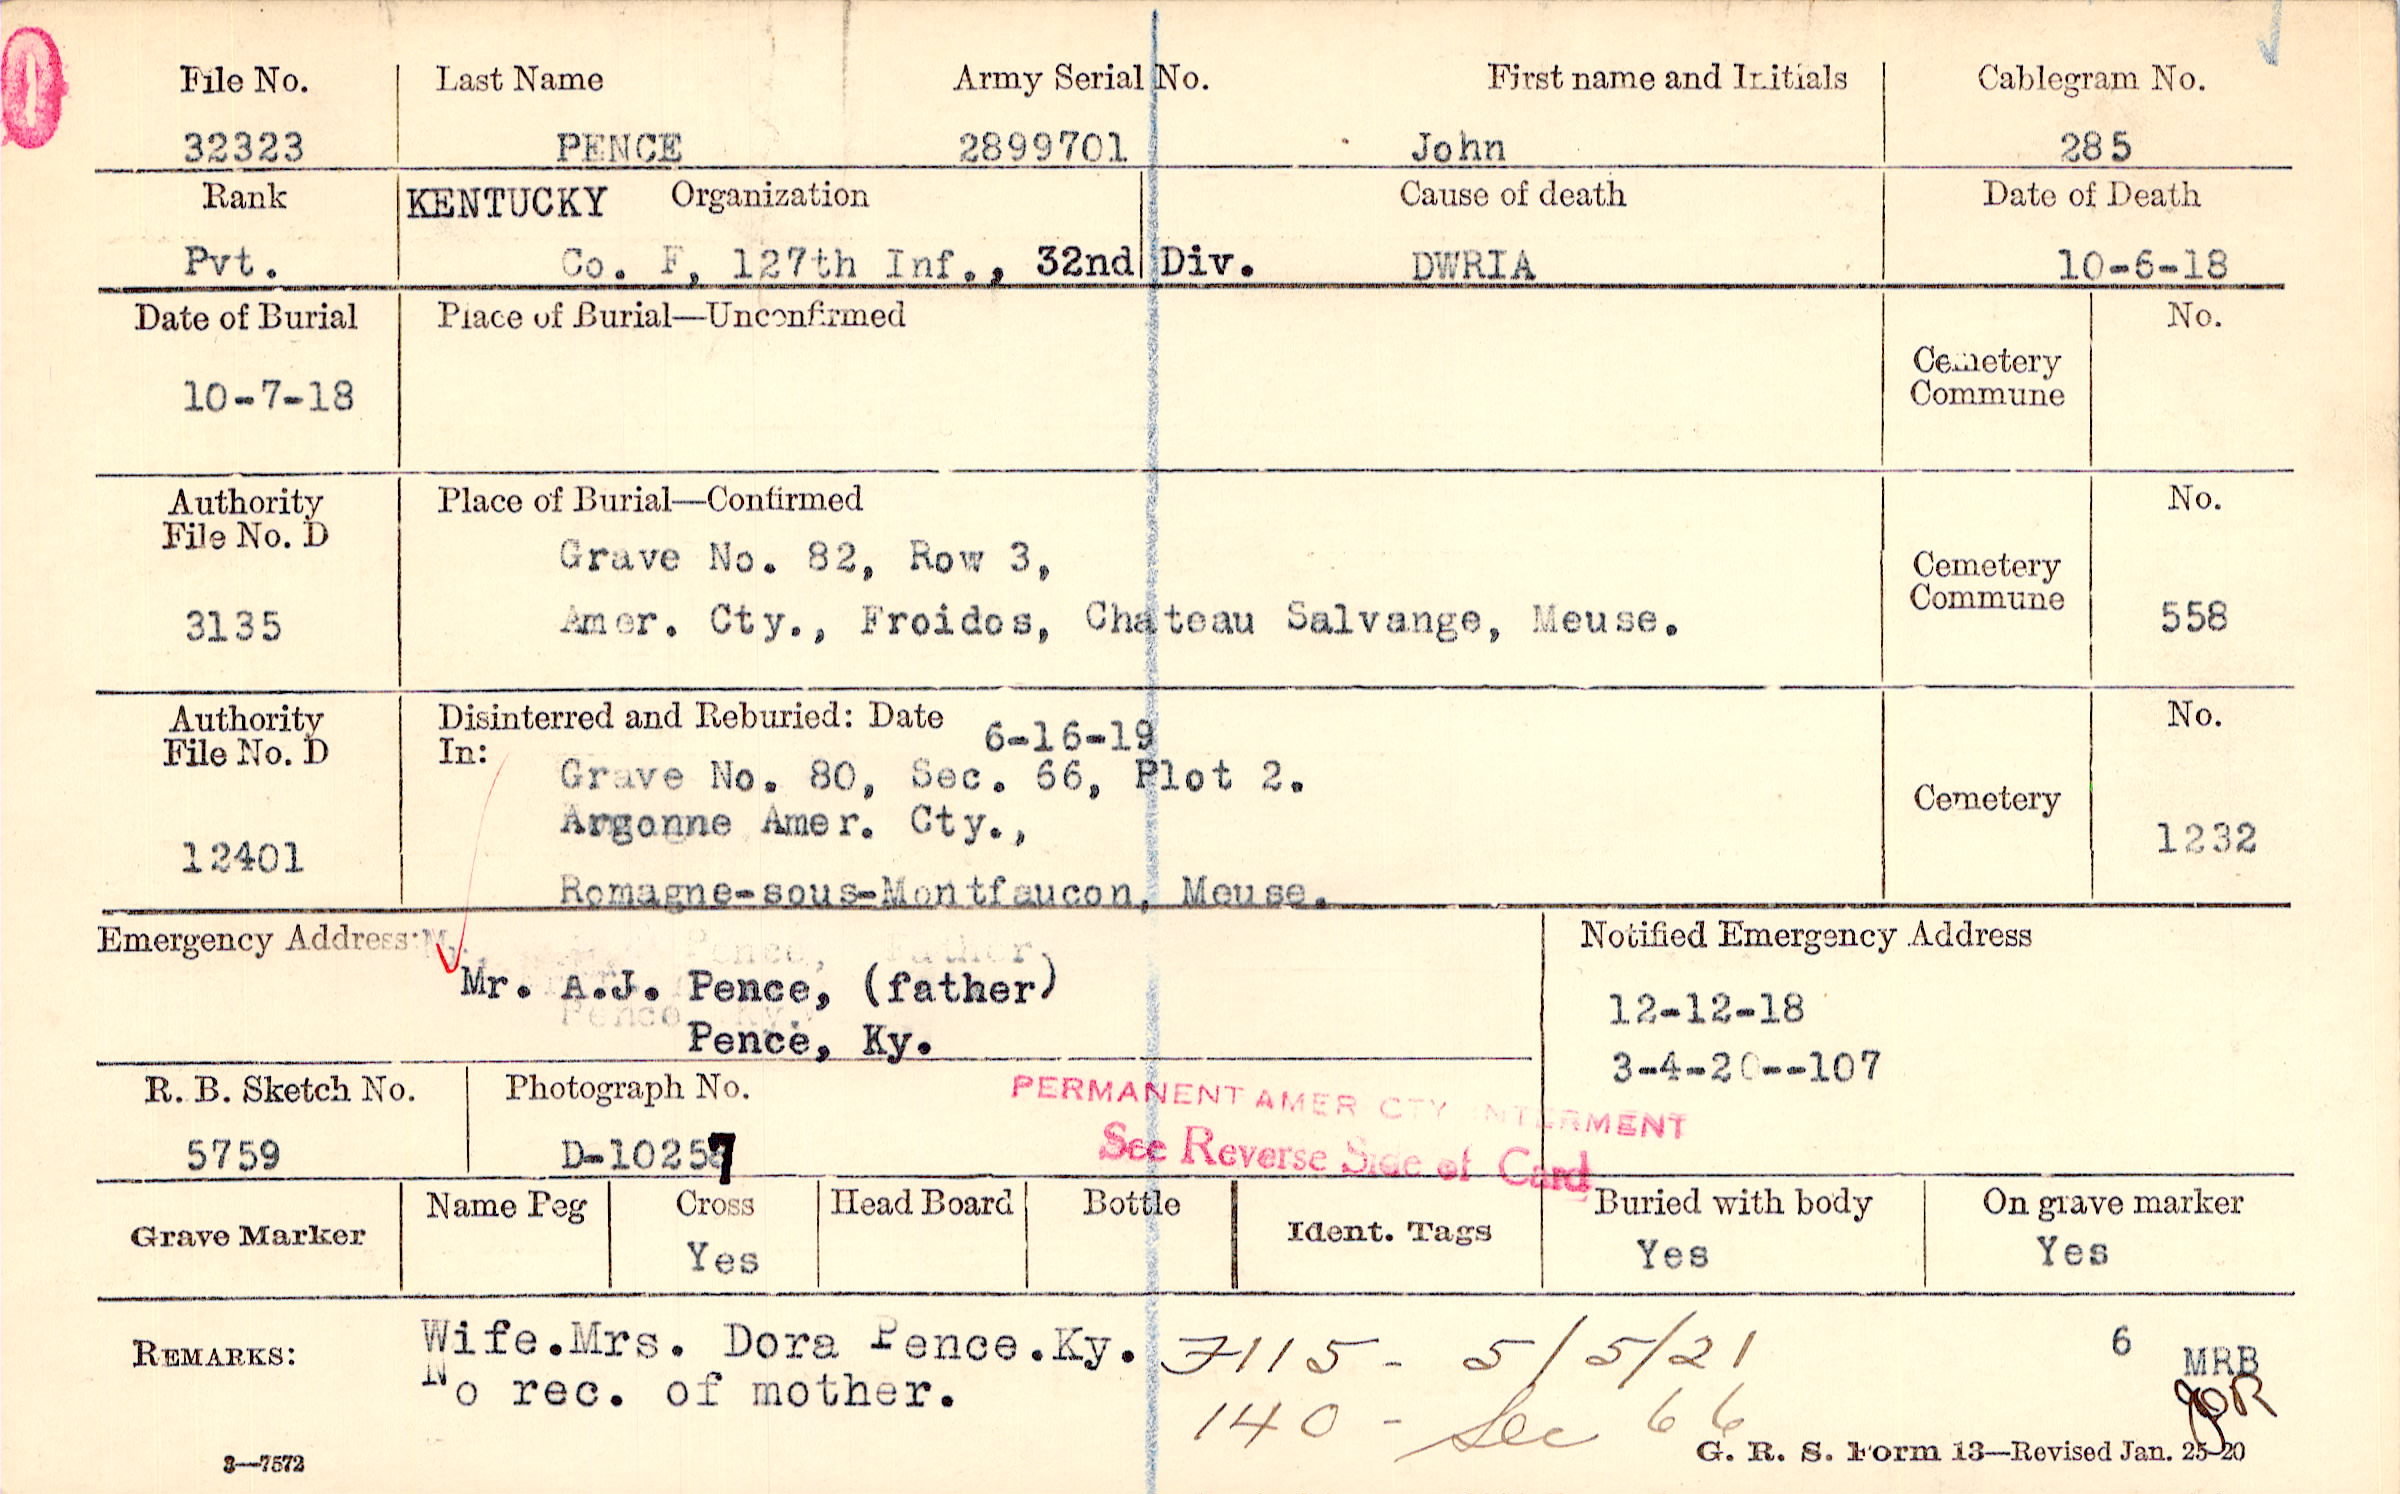 File No. Last Name Army Serial No. First name and Initials Cablegram No.
32323 PENCE 2899701 John 285
Rank KENTUCKY Organization Cause of death Date of Death
Pvt. Co. F, 127th Inf., 32nd Div. DWRIA 10-6-18
Date of Burial Place of Burial—Unconfirmed No.
10-7-18 Cemetery
Commune
Authority Place of Burial—Confirmed No.
File No. D
Grave No. 82, Row 3, Cemetery
3135 Amer. Cty., Froidos, Chateau Salvange, Meuse. Commune 558
Authority Disinterred and Reburied: Date 6-16-19 No.
File No. D In:
Grave No. 80, Sec. 66, Plot 2.
Argonne Amer. Cty., Cemetery
12401 1232
Romagne-sous-Montfaucon, Meuse.
Emergency Address: Notified Emergency Address
Pence, Father
Mr. A.J. Pence, (father) 12-12-18
Pence, Ky.
Pence, Ky. 3-4-20--107
R. B. Sketch No. Photograph No. PERMANENT AMER CTY INTERMENT
5759 D-10257 See Reverse Side of Card
Grave Marker Name Peg Cross Head Board Bottle Ident. Tags Buried with body On grave marker
Yes Yes Yes
REMARKS: Wife.Mrs. Dora Pence.Ky. 7115 - 5/5/21 6 MRB
No rec. of mother. 140 - Sec 66
3—7572 G. R. S. Form 13—Revised Jan. 25-20